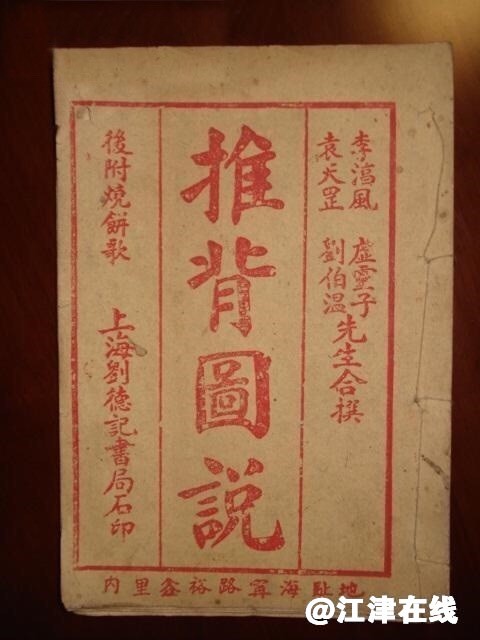 李淳風 虛靈子
袁天罡 劉伯溫
先生合撰
推背圖説
後附燒餅歌
上海劉德記書局石印
地趾海甯路裕鑫里内
@江津在线